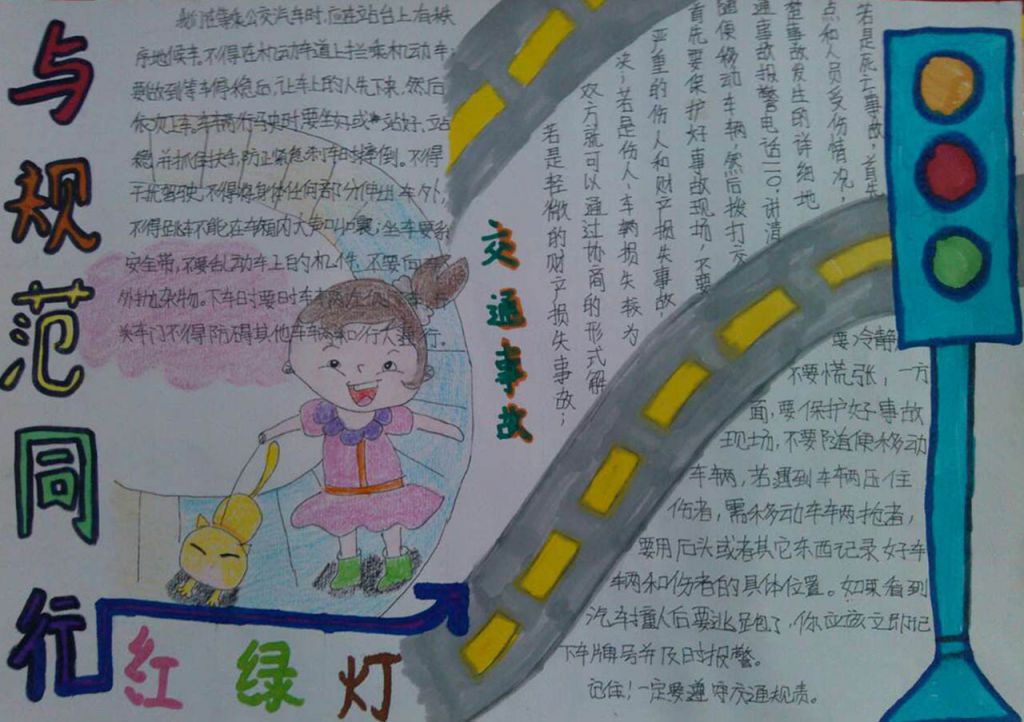 与规范同行
乘公交汽车时,应在站台上有秩
序地候车,不得在机动车道上拦乘机动车;
要做到等车停稳后,让车上的人先下来,然后
依次上车。车辆行驶时要坐好或站好,站
稳,并抓住扶手,防止紧急刹车时摔倒。不得
干扰驾驶,不得将身体任何部分伸出车外,
不得跳车不能在车厢内大声叫嚷;坐车要系
安全带,不要乱动车上的机件,不要向车
外抛杂物。下车时要
关车门不得防碍其他车辆和行人通行。
交通事故
若是死亡事故,首先
点和人员受伤情况,
楚事故发生的详细地
通事故报警电话110;讲清
随便移动车辆,然后拨打交
首先要保护好事故现场,不要
严重的伤人和财产损失事故,
决;若是伤人、车辆损失较为
双方就可以通过协商的形式解
若是轻微的财产损失事故;
要冷静
不要慌张,一方
面,要保护好事故
现场,不要随便移动
车辆,若遇到车辆压住
伤者,需移动车辆抢者,
要用石头或者其它东西记录好车
辆和伤者的具体位置。如果看到
汽车撞人后要逃跑了,你应该立即记
下车牌号并及时报警。
记住!一定要遵守交通规责。
红绿灯